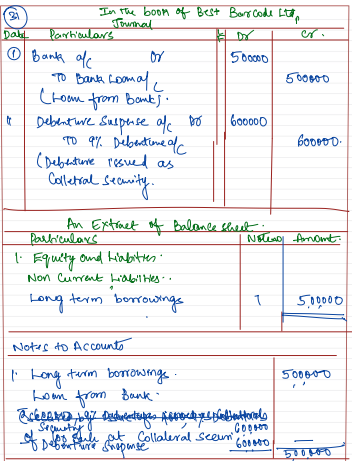 31
In the book of Best Barcode Ltd,
Journal
Date Particulars Dr Cr.
1 Bank a/c Dr 500000
To Bank Loan a/c 500000
(Loan from Bank).
" Debenture Suspense a/c Dr 600000
To 9% Debenture a/c 600000.
(Debenture issued as
Colletral Security.
An Extract of Balance sheet.
Particulars Note no Amount.
1. Equity and Liabilities.
Non Current Liabilities..
Long term borrowings 1 5,00,000
Notes to Accounts
1. Long term borrowings. 500000
Loan from Bank.
Security 600000
at Collateral Secur
Debenture Suspense 600000 —
500000